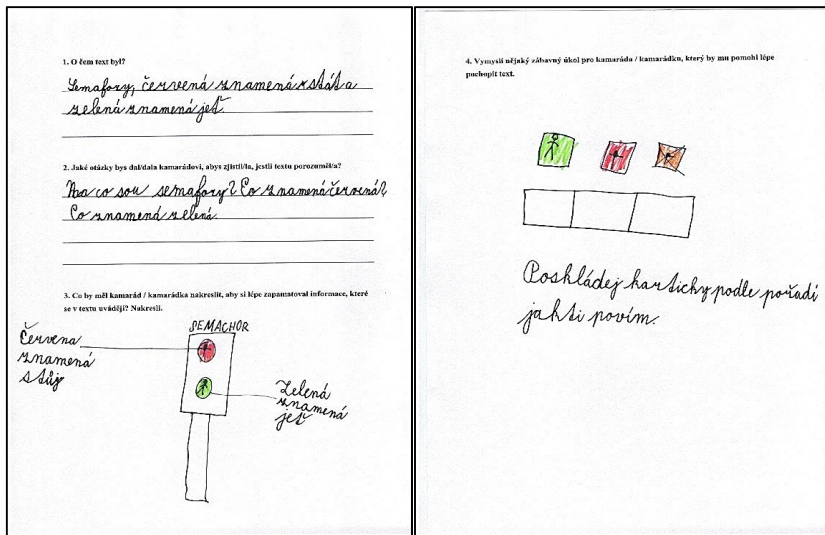 1. O čem text byl?
Semafory, červená znamená stát a
zelená znamená jeť.
2. Jaké otázky bys dal/dala kamarádovi, abys zjistil/la, jestli textu porozuměl/a?
Na co sou semafory? Co znamená červená?
Co znamená zelená.
3. Co by měl kamarád / kamarádka nakreslit, aby si lépe zapamatoval informace, které
se v textu uvádějí? Nakresli.
SEMACHOR
Červena
znamená
stůj
Zelená
znamená
jeť
4. Vymysli nějaký zábavný úkol pro kamaráda / kamarádku, který by mu pomohl lépe
pochopit text.
Poskládej kartichy podle pořadí
jak ti povím.